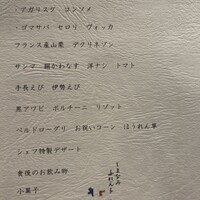 ・アガリスク　コンソメ
・ゴマサバ　セロリ　ヴォッカ
フランス産山鶉　デクリネゾン
サンマ　絹かわなす　洋ナシ　トマト
手長えび　伊勢えび
黒アワビ　ポルチーニ　リゾット
ペルドーグリ　お祝いコーン　ほうれん草
シェフ特製デザート
食後のお飲み物
小菓子
しまなみ
ふれんち